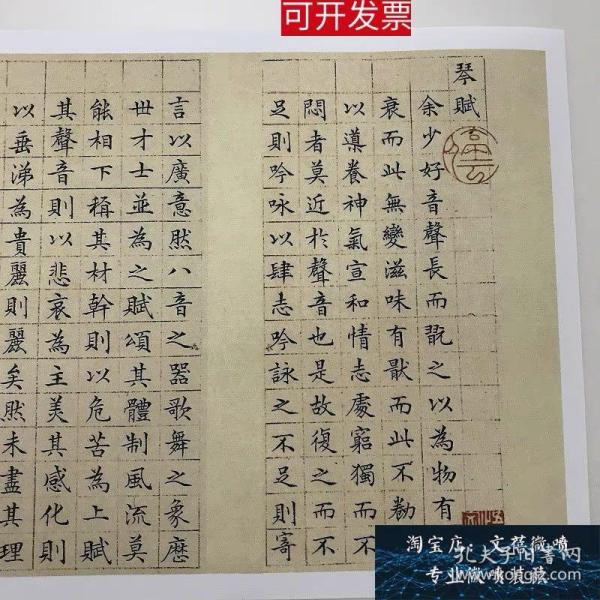 可开发票
琴賦
余少好音聲長而翫之以為物有
衰而此無變滋味有猒而此不勌
以導養神氣宣和情志處窮獨而不
悶者莫近於聲音也是故復之而不
足則吟咏以肆志吟詠之不足則寄
言以廣意然八音之器歌舞之象歷
世才士並為之賦頌其體制風流莫
能相下稱其材幹則以危苦為上賦
其聲音則以悲哀為主美其感化則
以垂涕為貴麗則麗矣然未盡其理
淘宝店：文葆微喷
孔夫子旧书网
专业微喷装裱